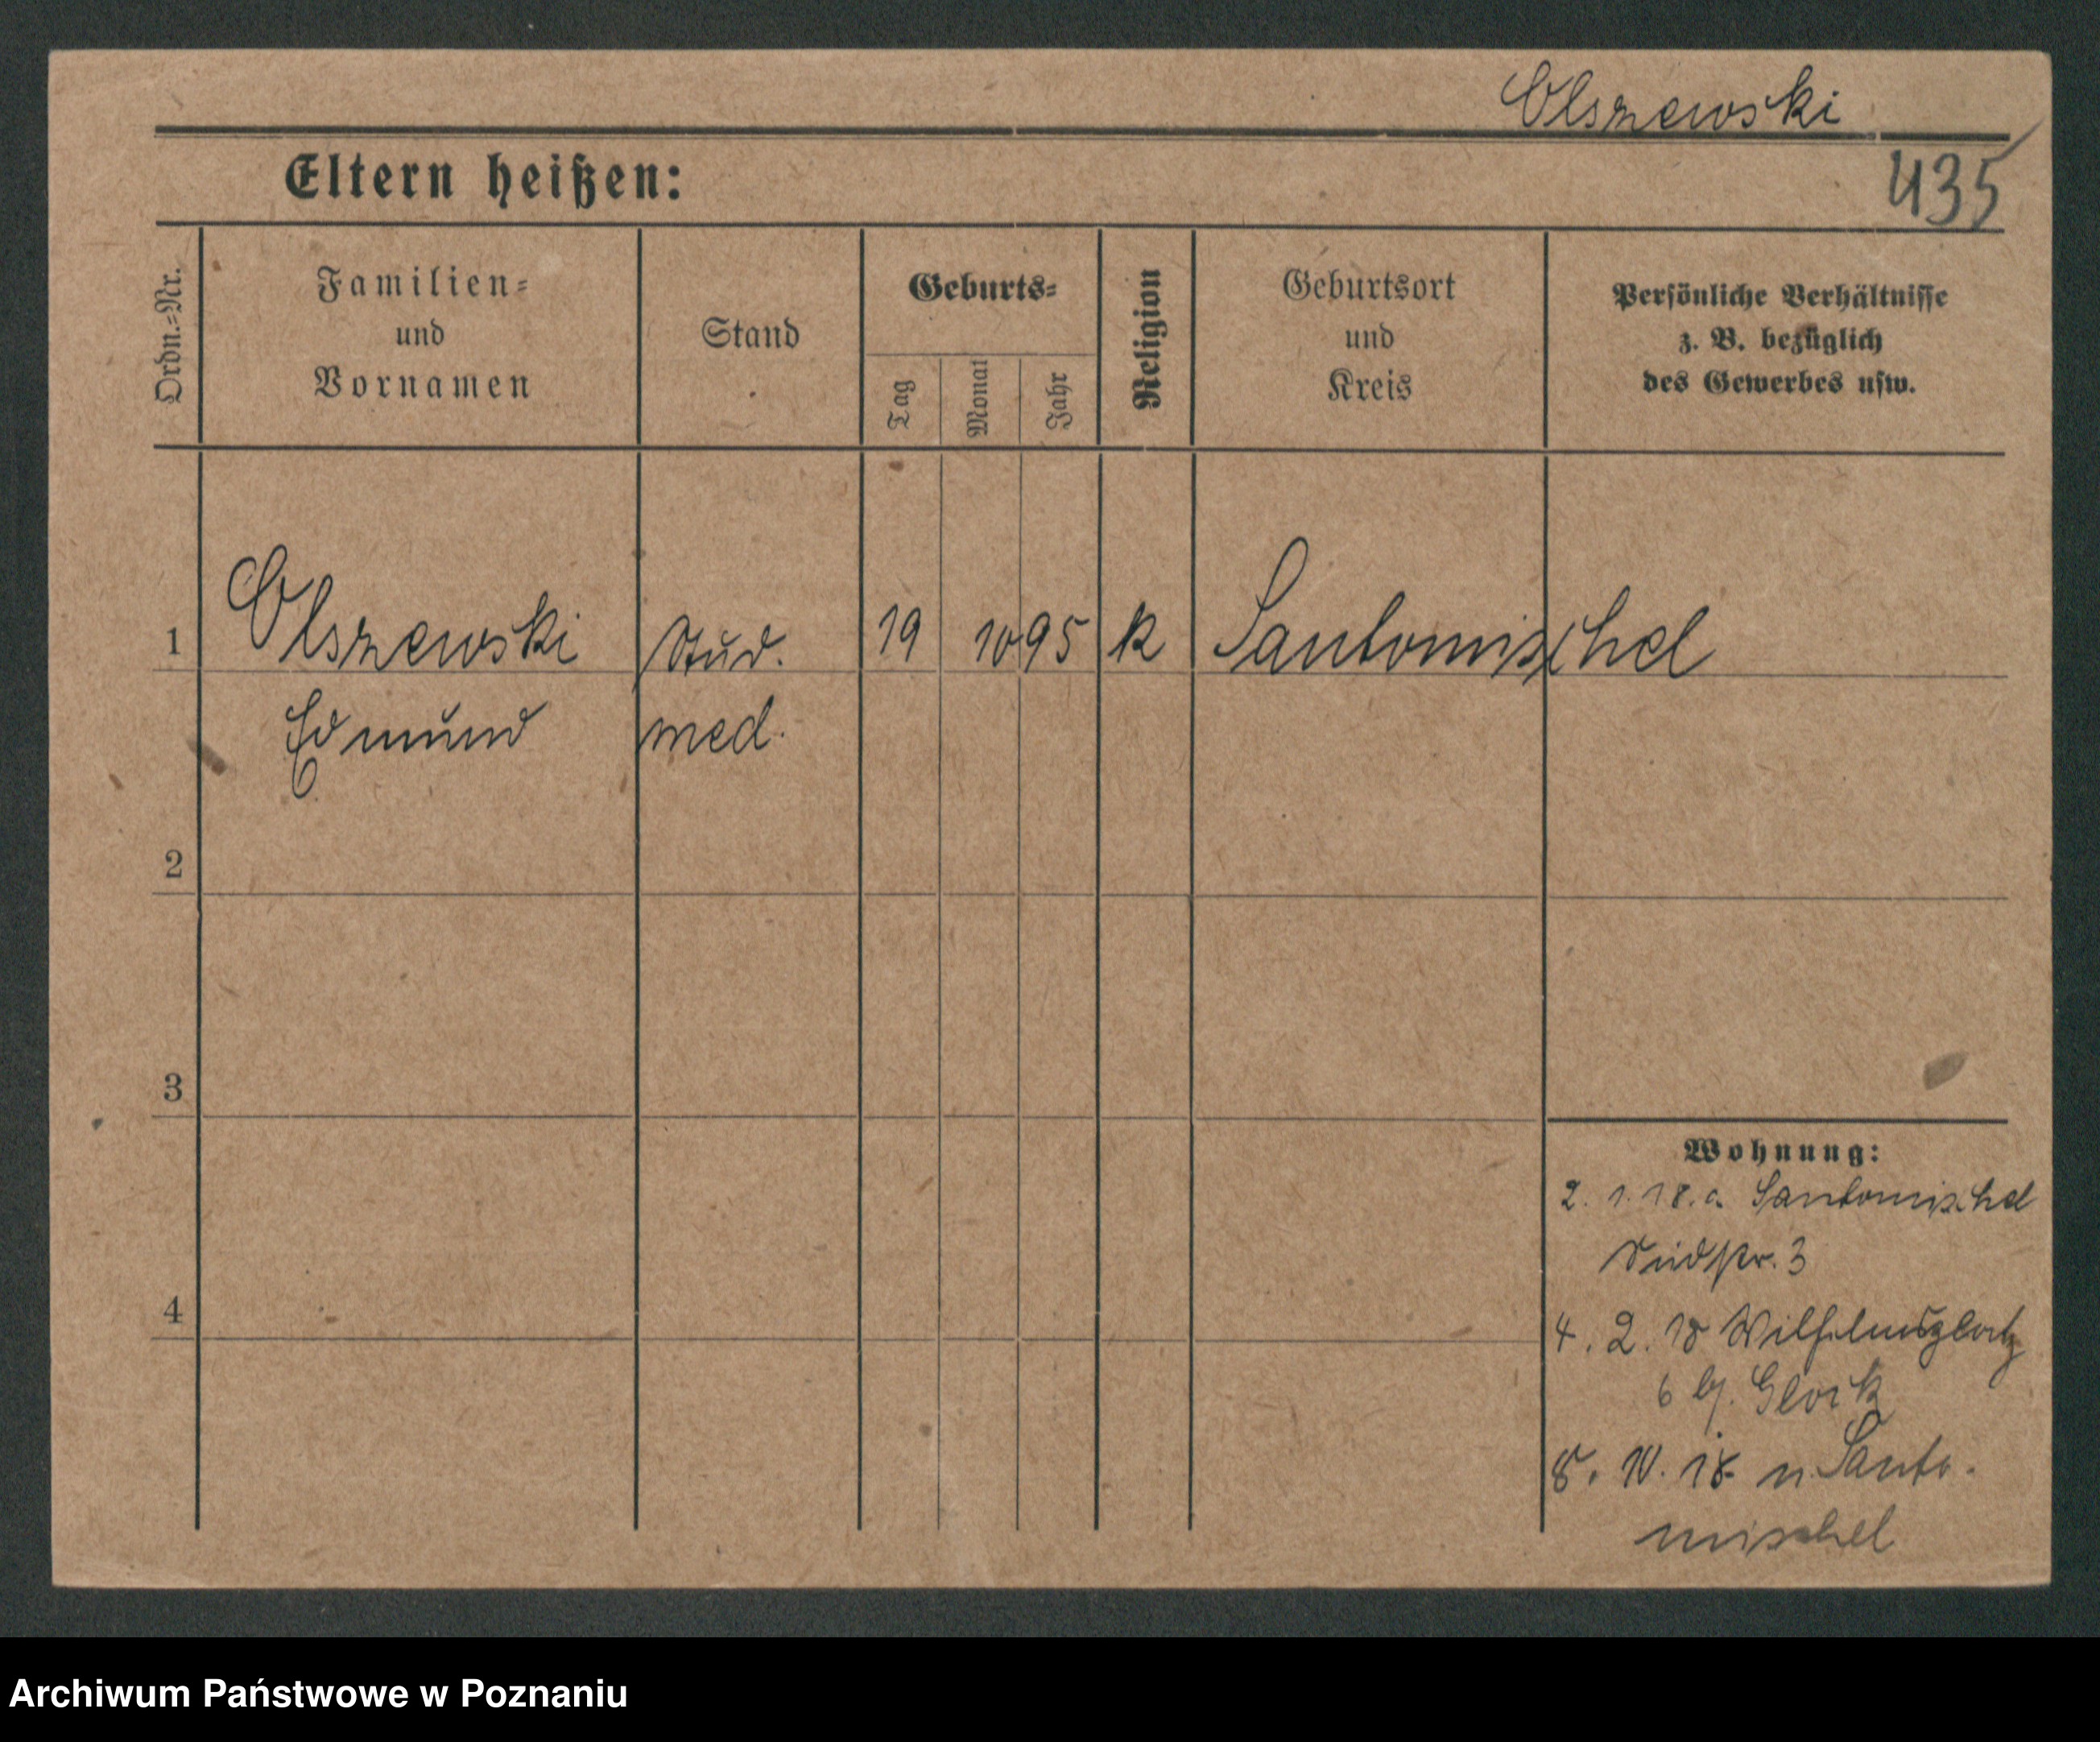 Olszewski
435
Eltern heißen:
Ordn.-Nr.
Familien-
und
Vornamen
Stand
Geburts-
Tag
Monat
Jahr
Religion
Geburtsort
und
Kreis
Persönliche Verhältnisse
z. B. bezüglich
des Gewerbes usw.
1 Olszewski Stud. 19 10 95 k Santomischel
Edmund med.
2
3
4
Wohnung:
2. 1. 18. a. Santomischel
Südstr. 3
4. 2. 18 Wilhelmsplatz
6 b/.
8. 10. 18 n. Santo-
mischel
Archiwum Państwowe w Poznaniu